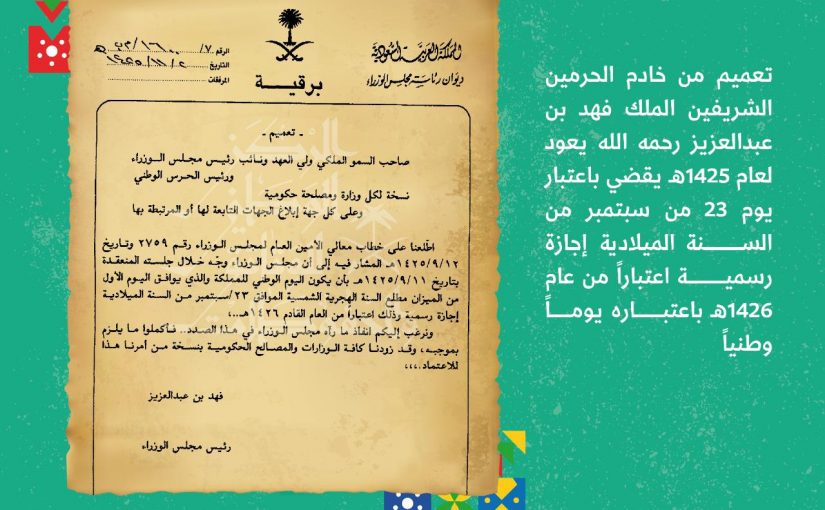 تعميم من خادم الحرمين
الشريفين الملك فهد بن
عبدالعزيز رحمه الله يعود
لعام 1425هـ يقضي باعتبار
يوم 23 من سبتمبر من
الســـنة الميلادية إجازة
رسميــة اعتباراً من عام
1426هـ باعتبـــاره يومــاً
وطنياً
المملكة العربية السعودية
ديوان رئاسة مجلس الوزراء
برقيــة
الرقم ٧/
التاريخ
المرفقات
- تعميم -
صاحب السمو الملكي ولي العهد ونائب رئيس مجلس الـوزراء
ورئيس الحرس الوطني
نسخة لكل وزارة ومصلحة حكومية
وعلى كل جهة إبلاغ الجهات التابعة لها أو المرتبطة بها
اطّلعنا على خطاب معالي الأمين العام لمجلس الوزراء رقم ٢٧٥٩ وتاريخ
١٤٢٥/٩/١٢هـ المشار فيه إلى أن مجلس الوزراء وجّه خلال جلسته المنعقدة
بتاريخ ١٤٢٥/٩/١١هـ بأن يكون اليوم الوطني للمملكة والذي يوافق اليوم الأول
من الميزان مطلع السنة الهجرية الشمسية الموافق ٢٣/سبتمبر من السنة الميلادية
إجازة رسمية وذلك اعتباراً من العام القادم ١٤٢٦هـ...،
ونرغب إليكم انفاذ ما رآه مجلس الوزراء في هذا الصدد.. فأكملوا ما يلزم
بموجبه، وقد زودنا كافة الوزارات والمصالح الحكومية بنسخة من أمرنا هذا
للاعتماد.،،،
فهد بن عبدالعزيز
رئيس مجلس الوزراء